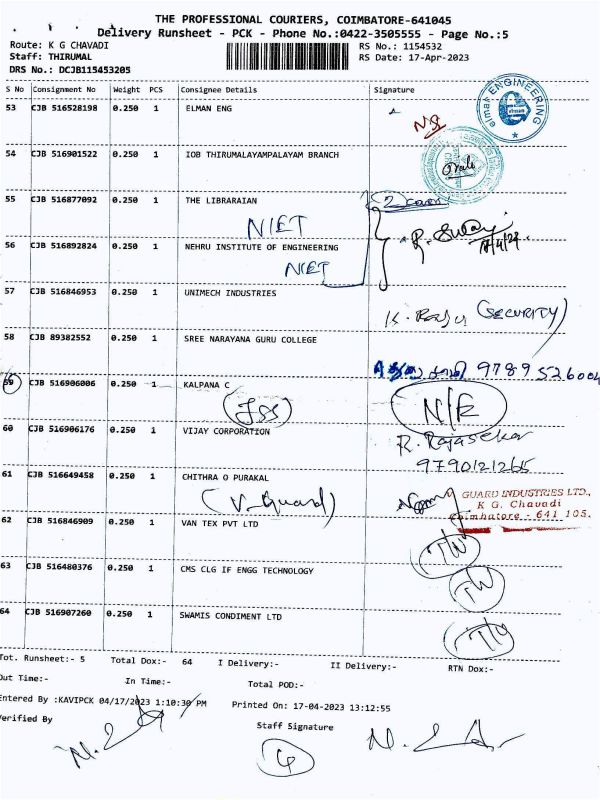 THE PROFESSIONAL COURIERS, COIMBATORE-641045
Delivery Runsheet - PCK - Phone No.:0422-3505555 - Page No.:5
Route: K G CHAVADI
RS No.: 1154532
Staff: THIRUMAL
RS Date: 17-Apr-2023
DRS No.: DCJB115453205
S No Consignment No Weight PCS Consignee Details Signature
53 CJB 516528198 0.250 1 ELMAN ENG
elmar ENGINEERING
54 CJB 516901522 0.250 1 IOB THIRUMALAYAMPALAYAM BRANCH
55 CJB 516877092 0.250 1 THE LIBRARAIAN
2 cover
NIET
56 CJB 516892824 0.250 1 NEHRU INSTITUTE OF ENGINEERING
NIET
57 CJB 516846953 0.250 1 UNIMECH INDUSTRIES
(SECURITY)
58 CJB 89382552 0.250 1 SREE NARAYANA GURU COLLEGE
9789526004
59 CJB 516906006 0.250 1 KALPANA C
N/E
60 CJB 516906176 0.250 1 VIJAY CORPORATION
R. Rajasekar
9790121265
61 CJB 516649458 0.250 1 CHITHRA O PURAKAL
(V-Guard)
GUARD INDUSTRIES LTD.,
K G. Chavadi
Coimbatore - 641 105.
62 CJB 516846909 0.250 1 VAN TEX PVT LTD
63 CJB 516480376 0.250 1 CMS CLG IF ENGG TECHNOLOGY
64 CJB 516907260 0.250 1 SWAMIS CONDIMENT LTD
Tot. Runsheet:- 5 Total Dox:- 64 I Delivery:- II Delivery:- RTN Dox:-
Out Time:- In Time:- Total POD:-
Entered By :KAVIPCK 04/17/2023 1:10:30 PM Printed On: 17-04-2023 13:12:55
Verified By
Staff Signature